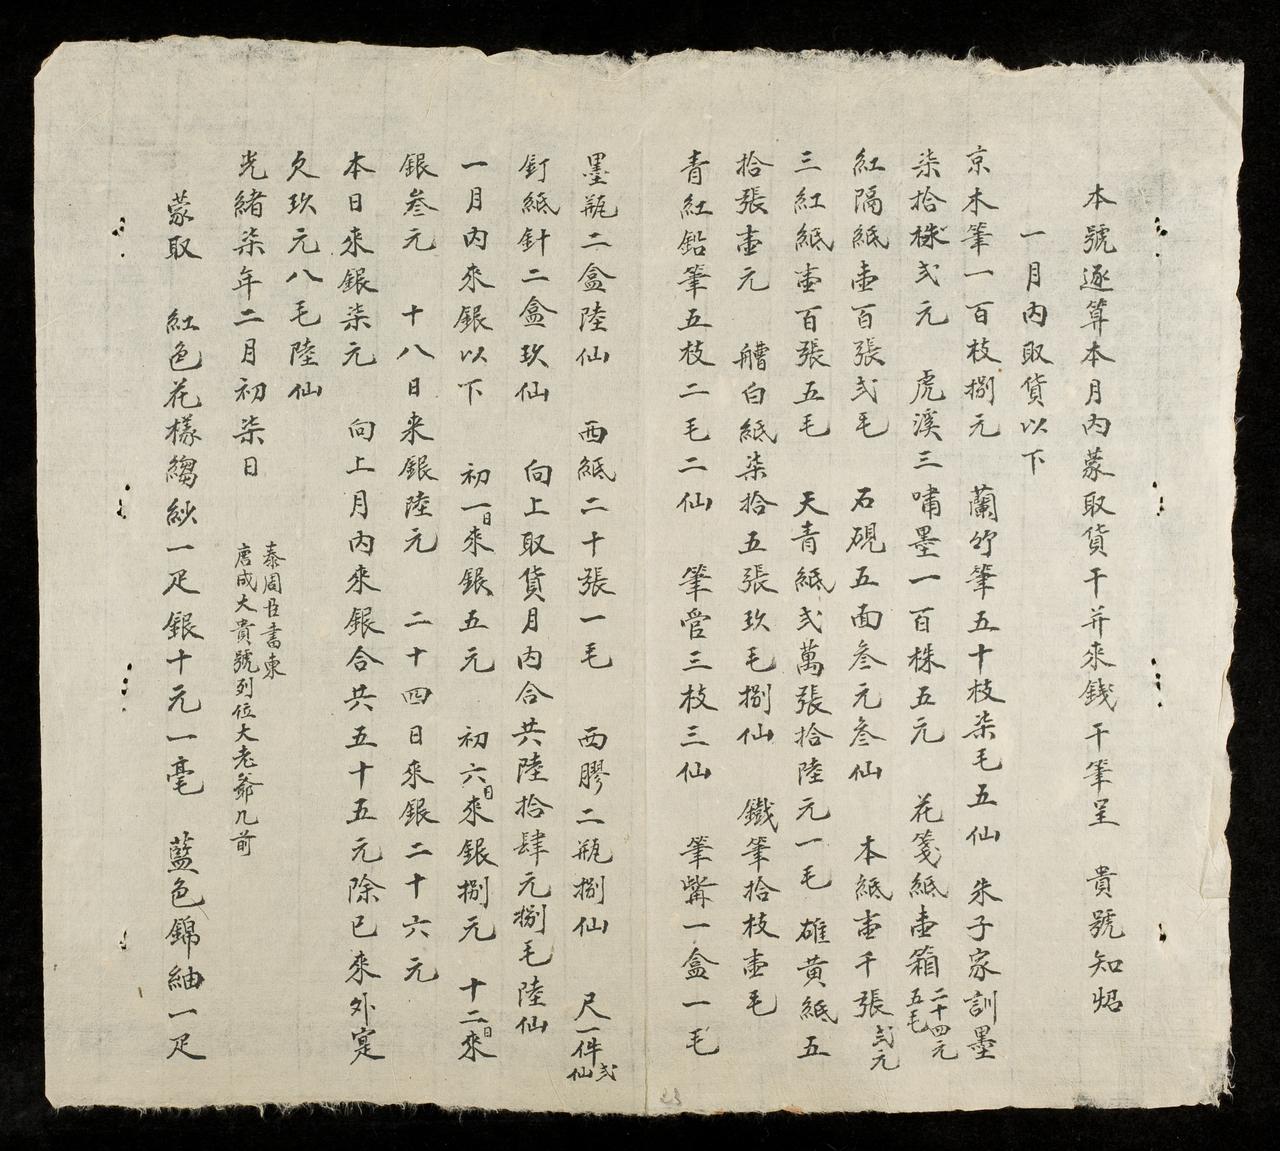 本號逐算本月內蒙取貨干并來錢干筆呈　貴號知炤
一月內取貨以下
京木筆一百枝捌元　蘭竹筆五十枝柒毛五仙　朱子家訓墨
柒拾株弍元　虎溪三嘯墨一百株五元　花箋紙壺箱二十四元五毛
紅隔紙壺百張弍毛　石硯五面叄元叄仙　本紙壺千張弍元
三紅紙壺百張五毛　天青紙弍萬張拾陸元一毛　雄黃紙五
拾張壺元　艚白紙柒拾五張玖毛捌仙　鐵筆拾枝壺毛
青紅鉛筆五枝二毛二仙　筆管三枝三仙　筆嘴一盒一毛
墨瓶二盒陸仙　西紙二十張一毛　西膠二瓶捌仙　尺一件弍仙
釘紙針二盒玖仙　向上取貨月內合共陸拾肆元捌毛陸仙
一月內來銀以下　初一日來銀五元　初六日來銀捌元　十二日來
銀叄元　十八日来銀陸元　二十四日來銀二十六元
本日來銀柒元　向上月內來銀合共五十五元除已來外寔
欠玖元八毛陸仙
光緒柒年二月初柒日
泰周臣書柬
唐成大貴號列位大老爺几前
蒙取　紅色花樣縐紗一疋銀十元一毫　藍色錦紬一疋
23